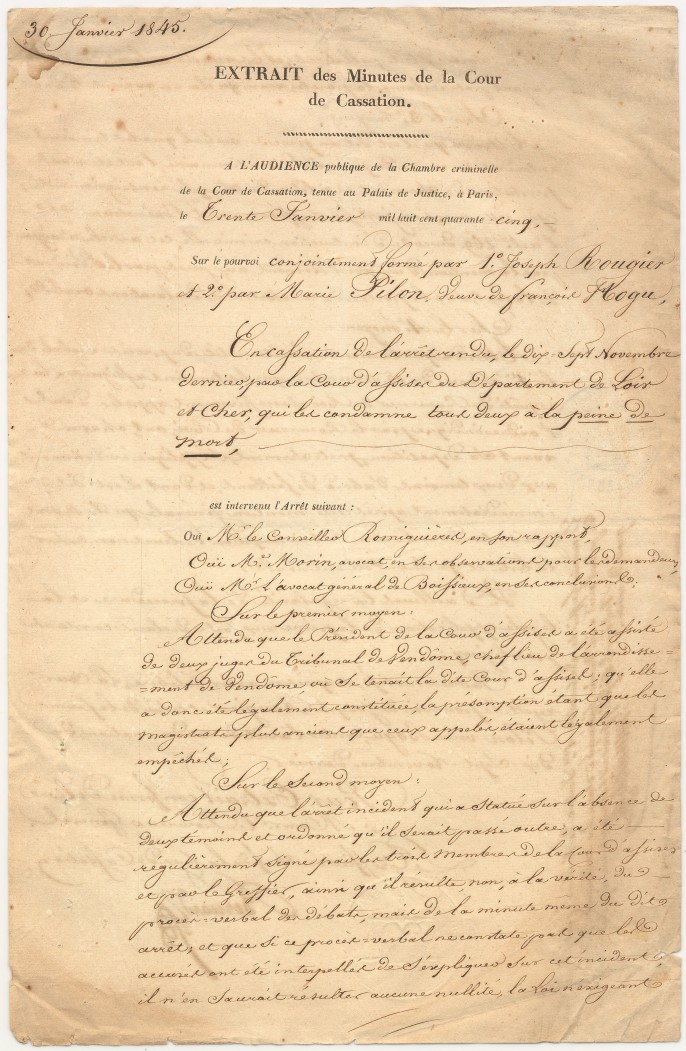 30 Janvier 1845.
EXTRAIT des Minutes de la Cour
de Cassation.
A L'AUDIENCE publique de la Chambre criminelle
de la Cour de Cassation, tenue au Palais de Justice, à Paris,
le Trente Janvier mil huit cent quarante-cinq,
Sur le pourvoi conjointement formé par 1.º Joseph Rougier
et 2.º par Marie Pilon, veuve de françois Hogu,
En cassation de l'arrêt rendu, le Dix-Sept Novembre
dernier, par la Cour d'assises du Département de Loir
et Cher, qui les condamne tous deux à la peine de
mort,
est intervenu l'Arrêt suivant :
Ouï Mr. le Conseiller Romiguières, en son rapport,
Ouï Me. Morin, avocat, en ses observations pour les demandeurs,
Ouï Mr. L'avocat général de Boissieux, en ses conclusions;
Sur le premier moyen :
Attendu que le Président de la Cour d'assises a été assisté
de deux juges du Tribunal de Vendôme, chef lieu de l'arrondisse-
=ment de Vendôme, où se tenait la dite Cour d'assises ; qu'elle
a donc été légalement constituée, la présomption étant que les
magistrats plus anciens que ceux appelés, étaient légalement
empêchés;
Sur le Second moyen :
Attendu que l'arrêt incident qui a Statué Sur l'absence de
deux témoins et ordonné qu'il serait passé outre, a été —
régulièrement signé par les trois Membres de la Cour d'assises
et par le Greffier, ainsi qu'il résulte non, à la vérité, du —
procès=verbal des débats, mais de la minute même du dit
arrêt; et que si ce procès=verbal ne constate pas que les
accusés ont été interpellés de S'expliquer Sur cet incident,
il n'en Saurait résulter aucune nullité, la Loi n'exigeant